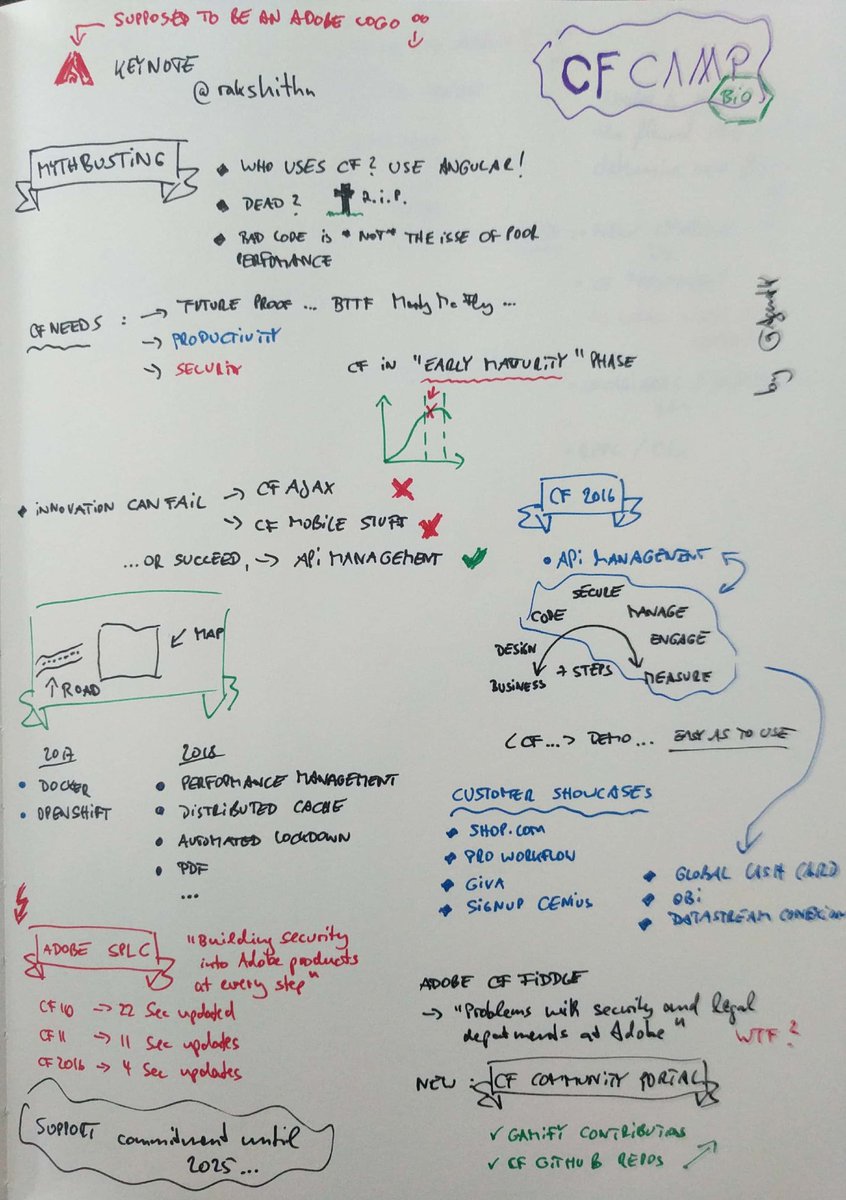 SUPPOSED TO BE AN ADOBE LOGO
KEYNOTE
@rakshithn
CF CAMP
BiO
MYTHBUSTING
WHO USES CF? USE ANGULAR!
DEAD? R.i.P.
BAD CODE is *NOT* THE ISSE OF POOR
PERFOMANCE
CF NEEDS : → FUTURE PROOF ... BTTF Marty Mc Fly ...
→ PRODUCTIVITY
→ SECURITY
by @AgentK
CF IN "EARLY MATURITY" PHASE
INNOVATION CAN FAIL → CF AJAX
→ CF MOBILE STUFF
... OR SUCCEED, → APi MANAGEMENT
CF 2016
APi MANAGEMENT
SECURE
CODE
MANAGE
ENGAGE
DESIGN
BUSINESS
7 STEPS
MEASURE
MAP
ROAD
<CF...> DEMO... EASY AS TO USE
2017
DOCKER
OPENSHIFT
2018
PERFORMANCE MANAGEMENT
DISTRIBUTED CACHE
AUTOMATED LOCKDOWN
PDF
...
CUSTOMER SHOWCASES
SHOP.COM
PRO WORKFLOW
GIVA
SIGNUP GENIUS
GLOBAL CASH CARD
OBi
DATASTREAM CONEXION
ADOBE SPLC
"Building security
into Adobe products
at every step"
CF 10 → 22 Sec updated
CF 11 → 11 Sec updates
CF 2016 → 4 Sec updates
SUPPORT commitment until
2025...
ADOBE CF FIDDLE
→ "Problems with security and legal
departments at Adobe"
WTF?
NEW : CF COMMUNITY PORTAL
✓ GAMIFY CONTRIBUTIONS
✓ CF GITHUB REPOS